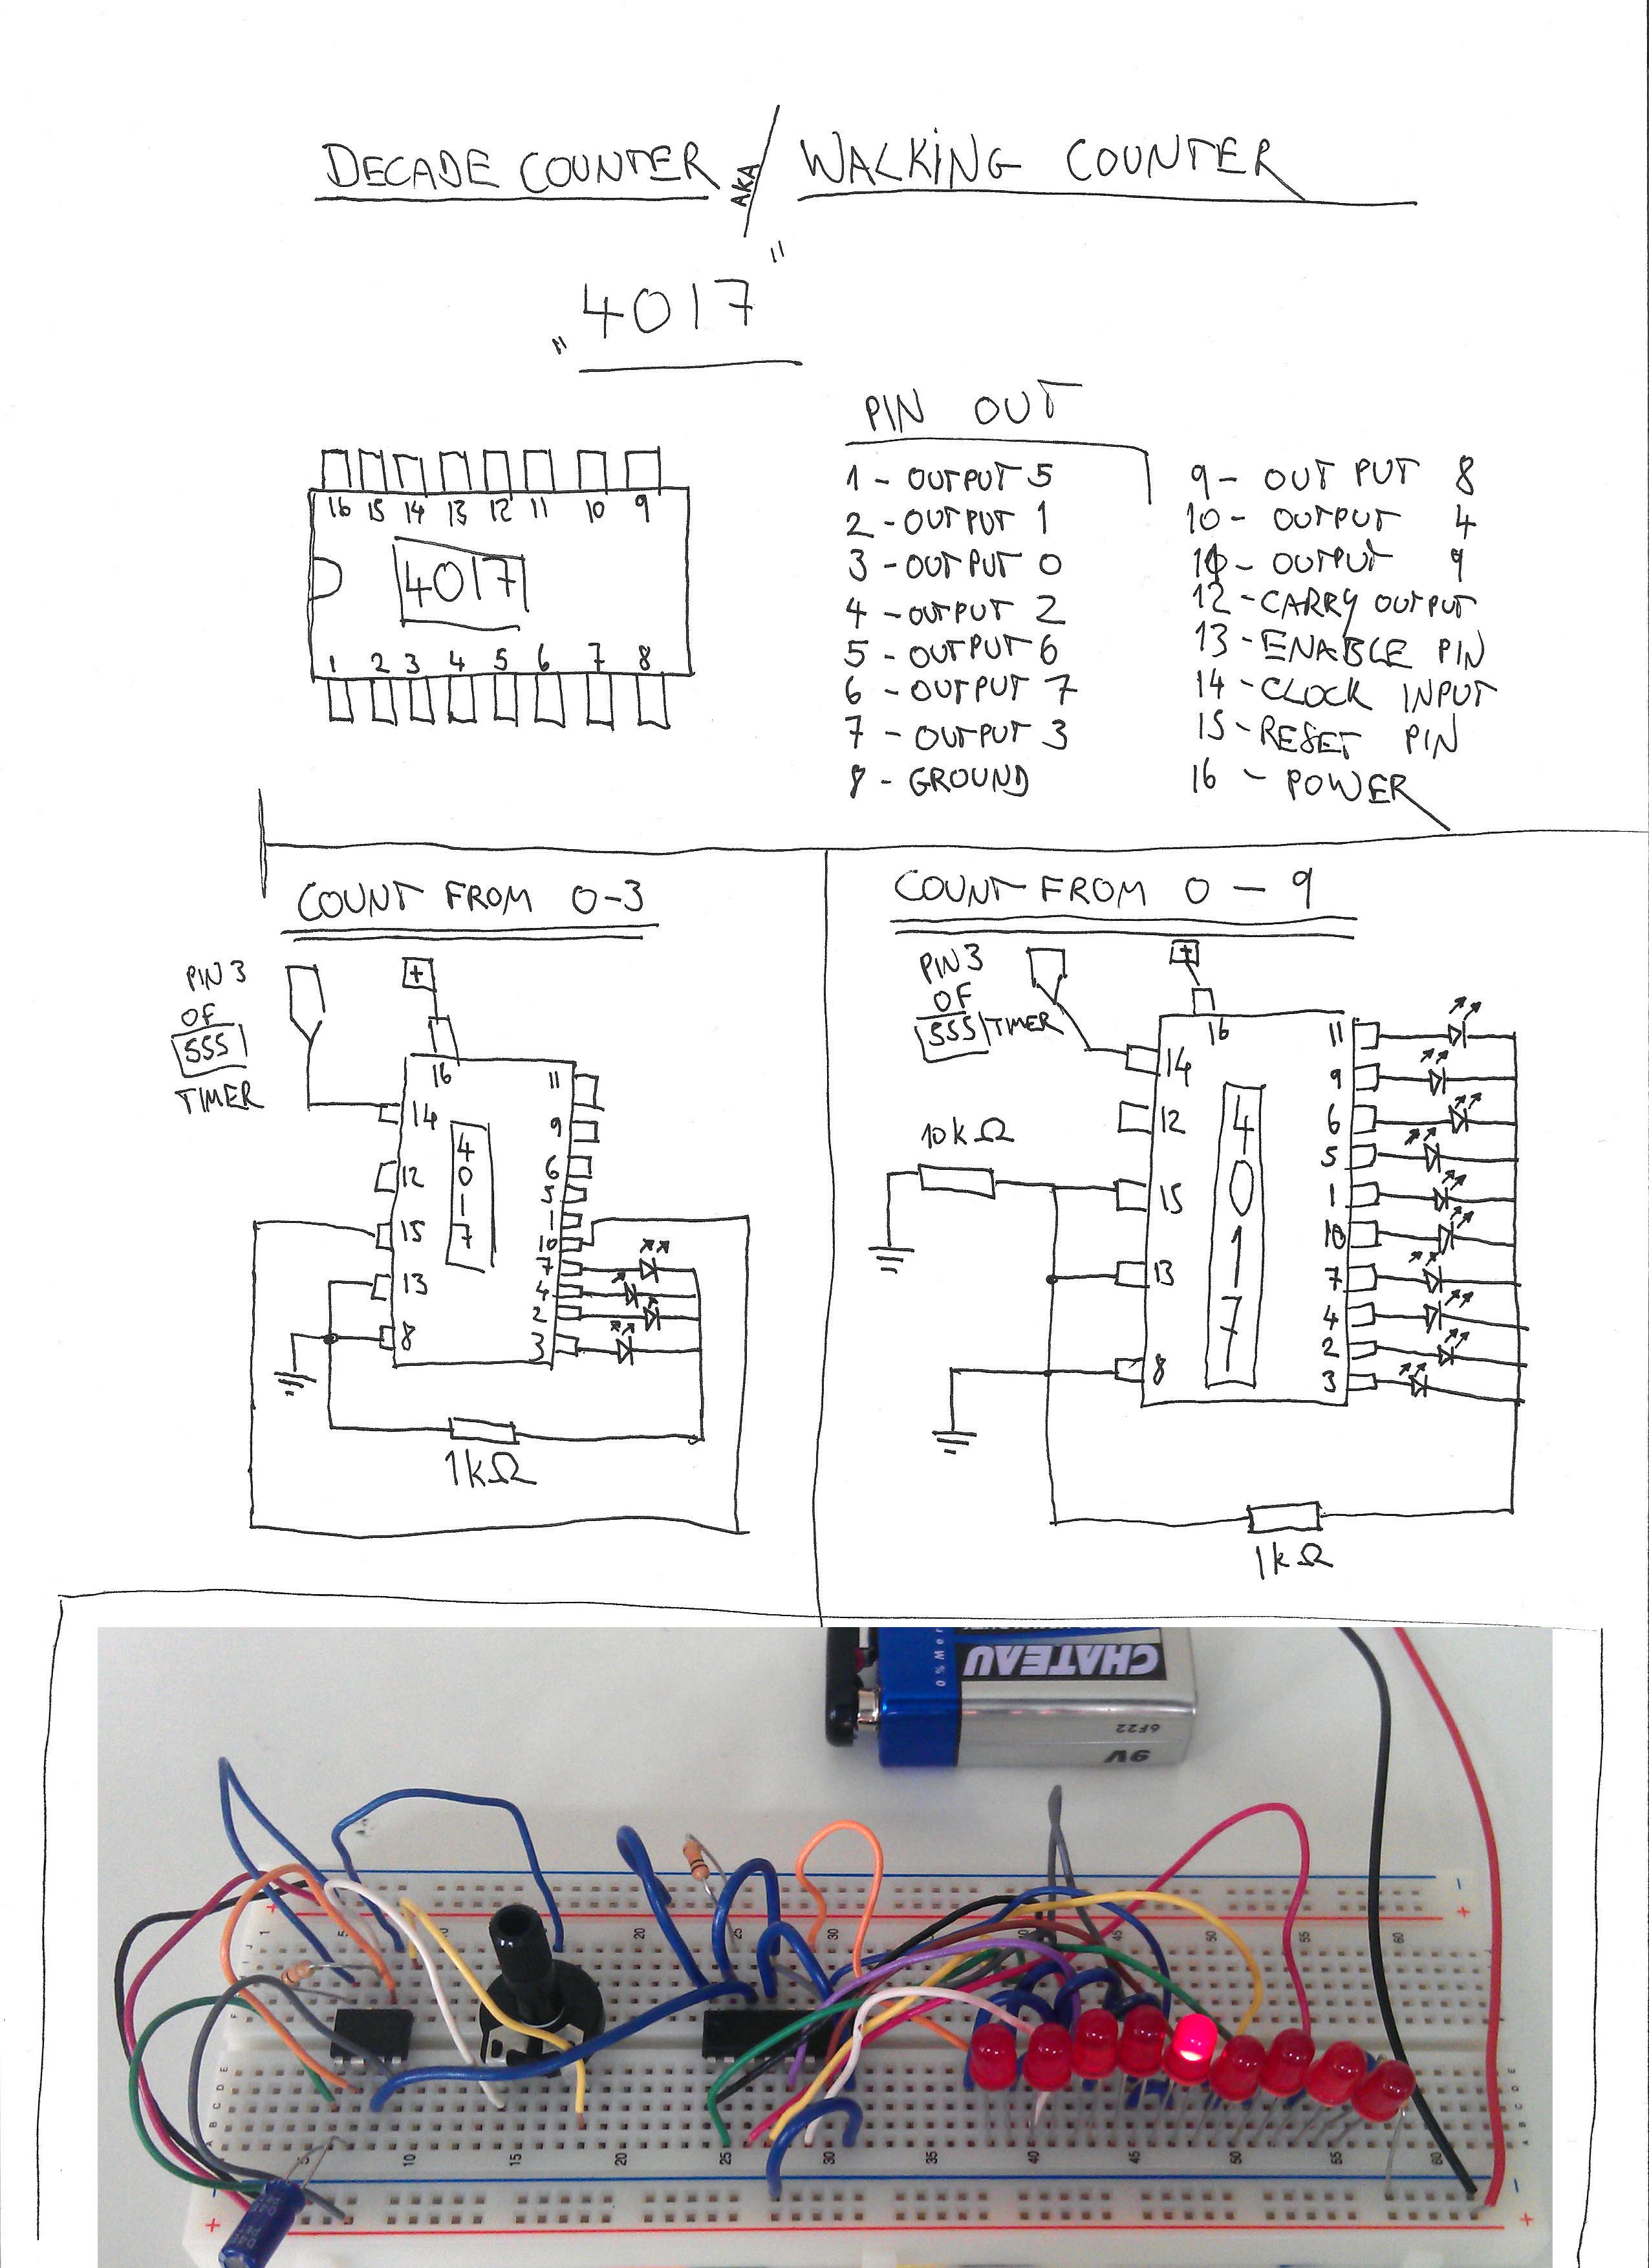 DECADE COUNTER AKA / WALKING COUNTER
"4017"
16 15 14 13 12 11 10 9
4017
1 2 3 4 5 6 7 8
PIN OUT
1 - OUTPUT 5
2 - OUTPUT 1
3 - OUTPUT 0
4 - OUTPUT 2
5 - OUTPUT 6
6 - OUTPUT 7
7 - OUTPUT 3
8 - GROUND
9 - OUT PUT 8
10 - OUTPUT 4
11 - OUTPUT 9
12 - CARRY OUTPUT
13 - ENABLE PIN
14 - CLOCK INPUT
15 - RESET PIN
16 - POWER
COUNT FROM 0-3
PIN 3
OF
555
TIMER
+
16
14
12
15
13
8
4017
11
9
6
5
1
10
7
4
2
3
1kΩ
COUNT FROM 0 - 9
PIN 3
OF
555 TIMER
+
16
14
12
15
13
8
10kΩ
4017
11
9
6
5
1
10
7
4
2
3
1kΩ
CHATEAU
0%
6F22
9V